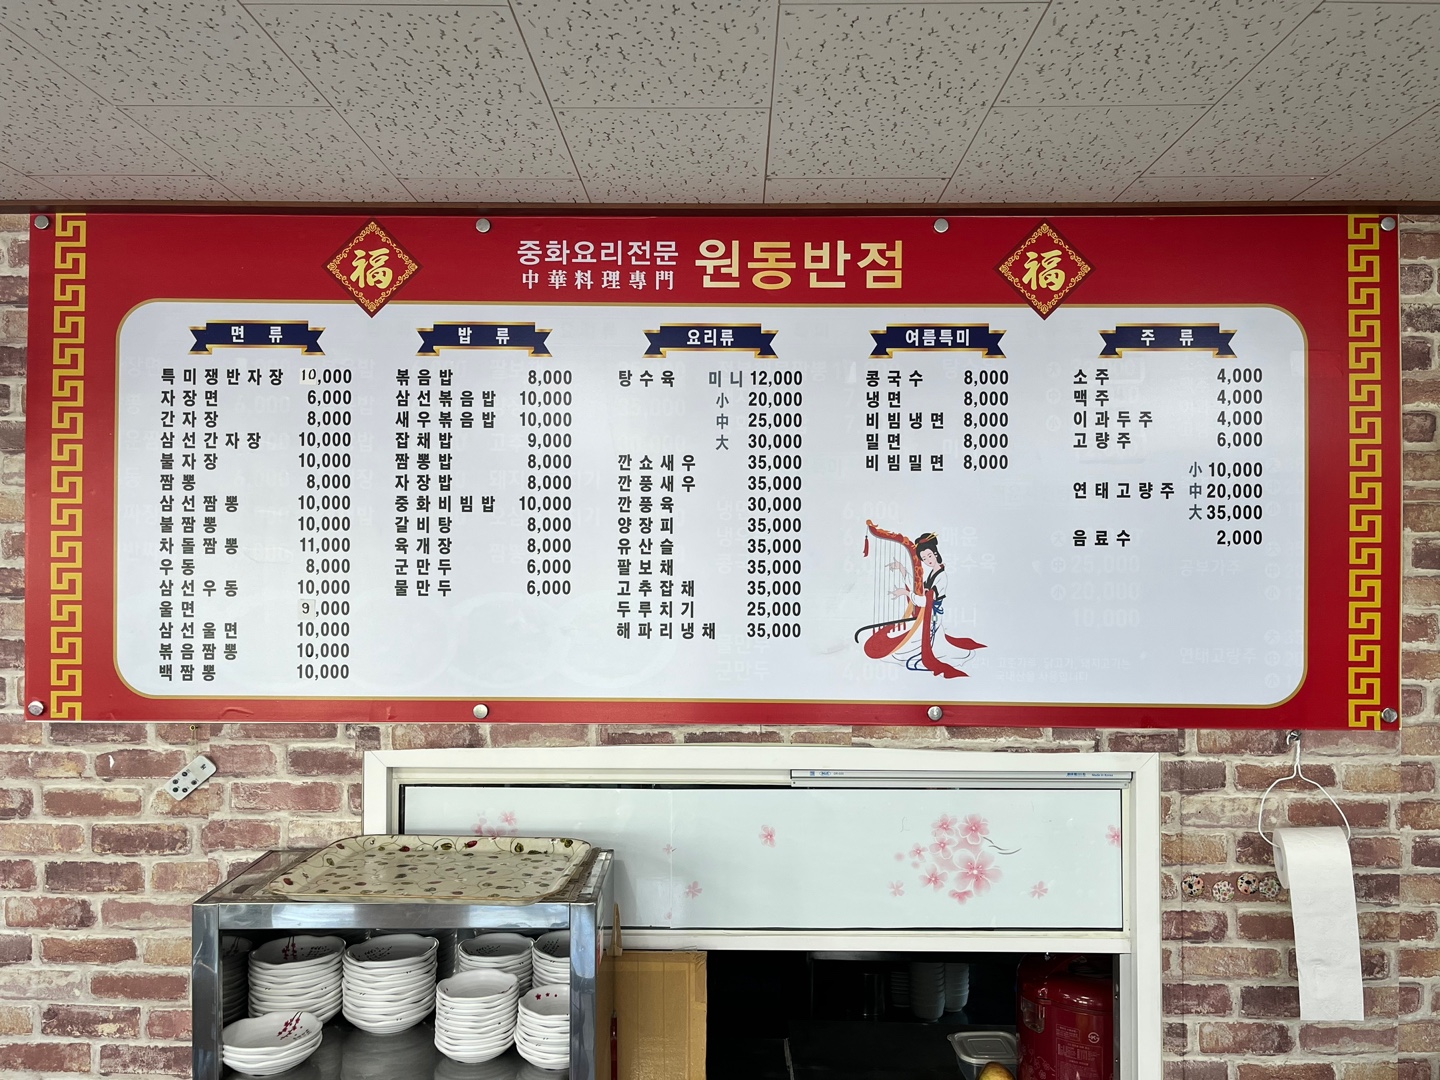 福
중화요리전문
中華料理專門
원동반점
福
면 류
특미쟁반자장 10,000
자장면 6,000
간자장 8,000
삼선간자장 10,000
불자장 10,000
짬뽕 8,000
삼선짬뽕 10,000
불짬뽕 10,000
차돌짬뽕 11,000
우동 8,000
삼선우동 10,000
울면 9,000
삼선울면 10,000
볶음짬뽕 10,000
백짬뽕 10,000
밥 류
볶음밥 8,000
삼선볶음밥 10,000
새우볶음밥 10,000
잡채밥 9,000
짬뽕밥 8,000
자장밥 8,000
중화비빔밥 10,000
갈비탕 8,000
육개장 8,000
군만두 6,000
물만두 6,000
요리류
탕수육 미니 12,000
小 20,000
中 25,000
大 30,000
깐쇼새우 35,000
깐풍새우 35,000
깐풍육 30,000
양장피 35,000
유산슬 35,000
팔보채 35,000
고추잡채 35,000
두루치기 25,000
해파리냉채 35,000
여름특미
콩국수 8,000
냉면 8,000
비빔냉면 8,000
밀면 8,000
비빔밀면 8,000
주 류
소주 4,000
맥주 4,000
이과두주 4,000
고량주 6,000
小 10,000
연태고량주 中 20,000
大 35,000
음료수 2,000